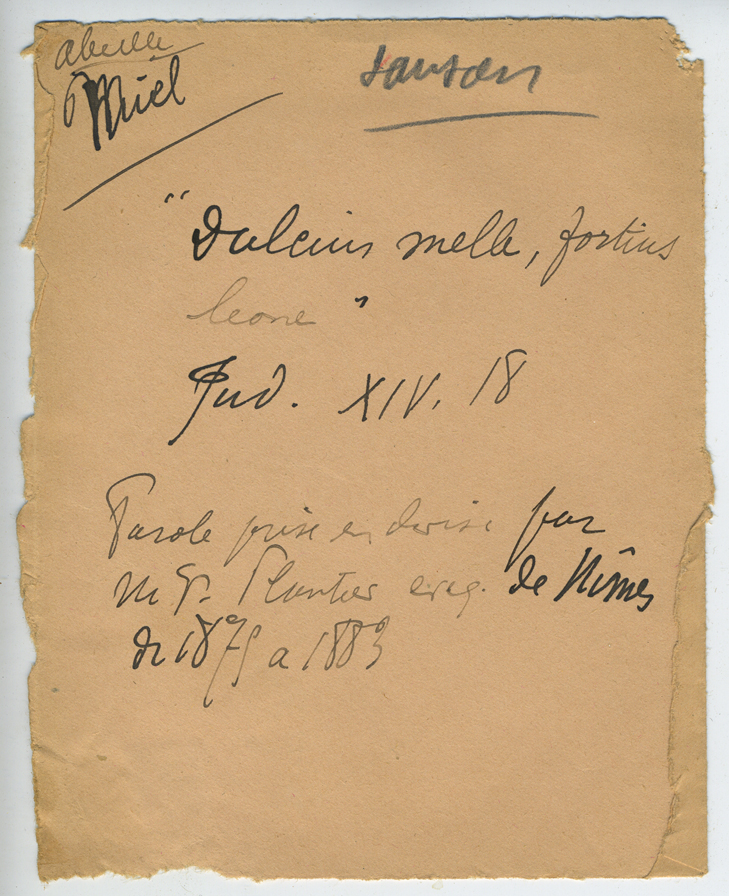 abeille
Miel
Samson
"Dulcius melle, fortius
leone"
Jud. XIV. 18
Parole prise en devise par
Mgr. Plantier eveq. de Nîmes
de 1875 a 1883